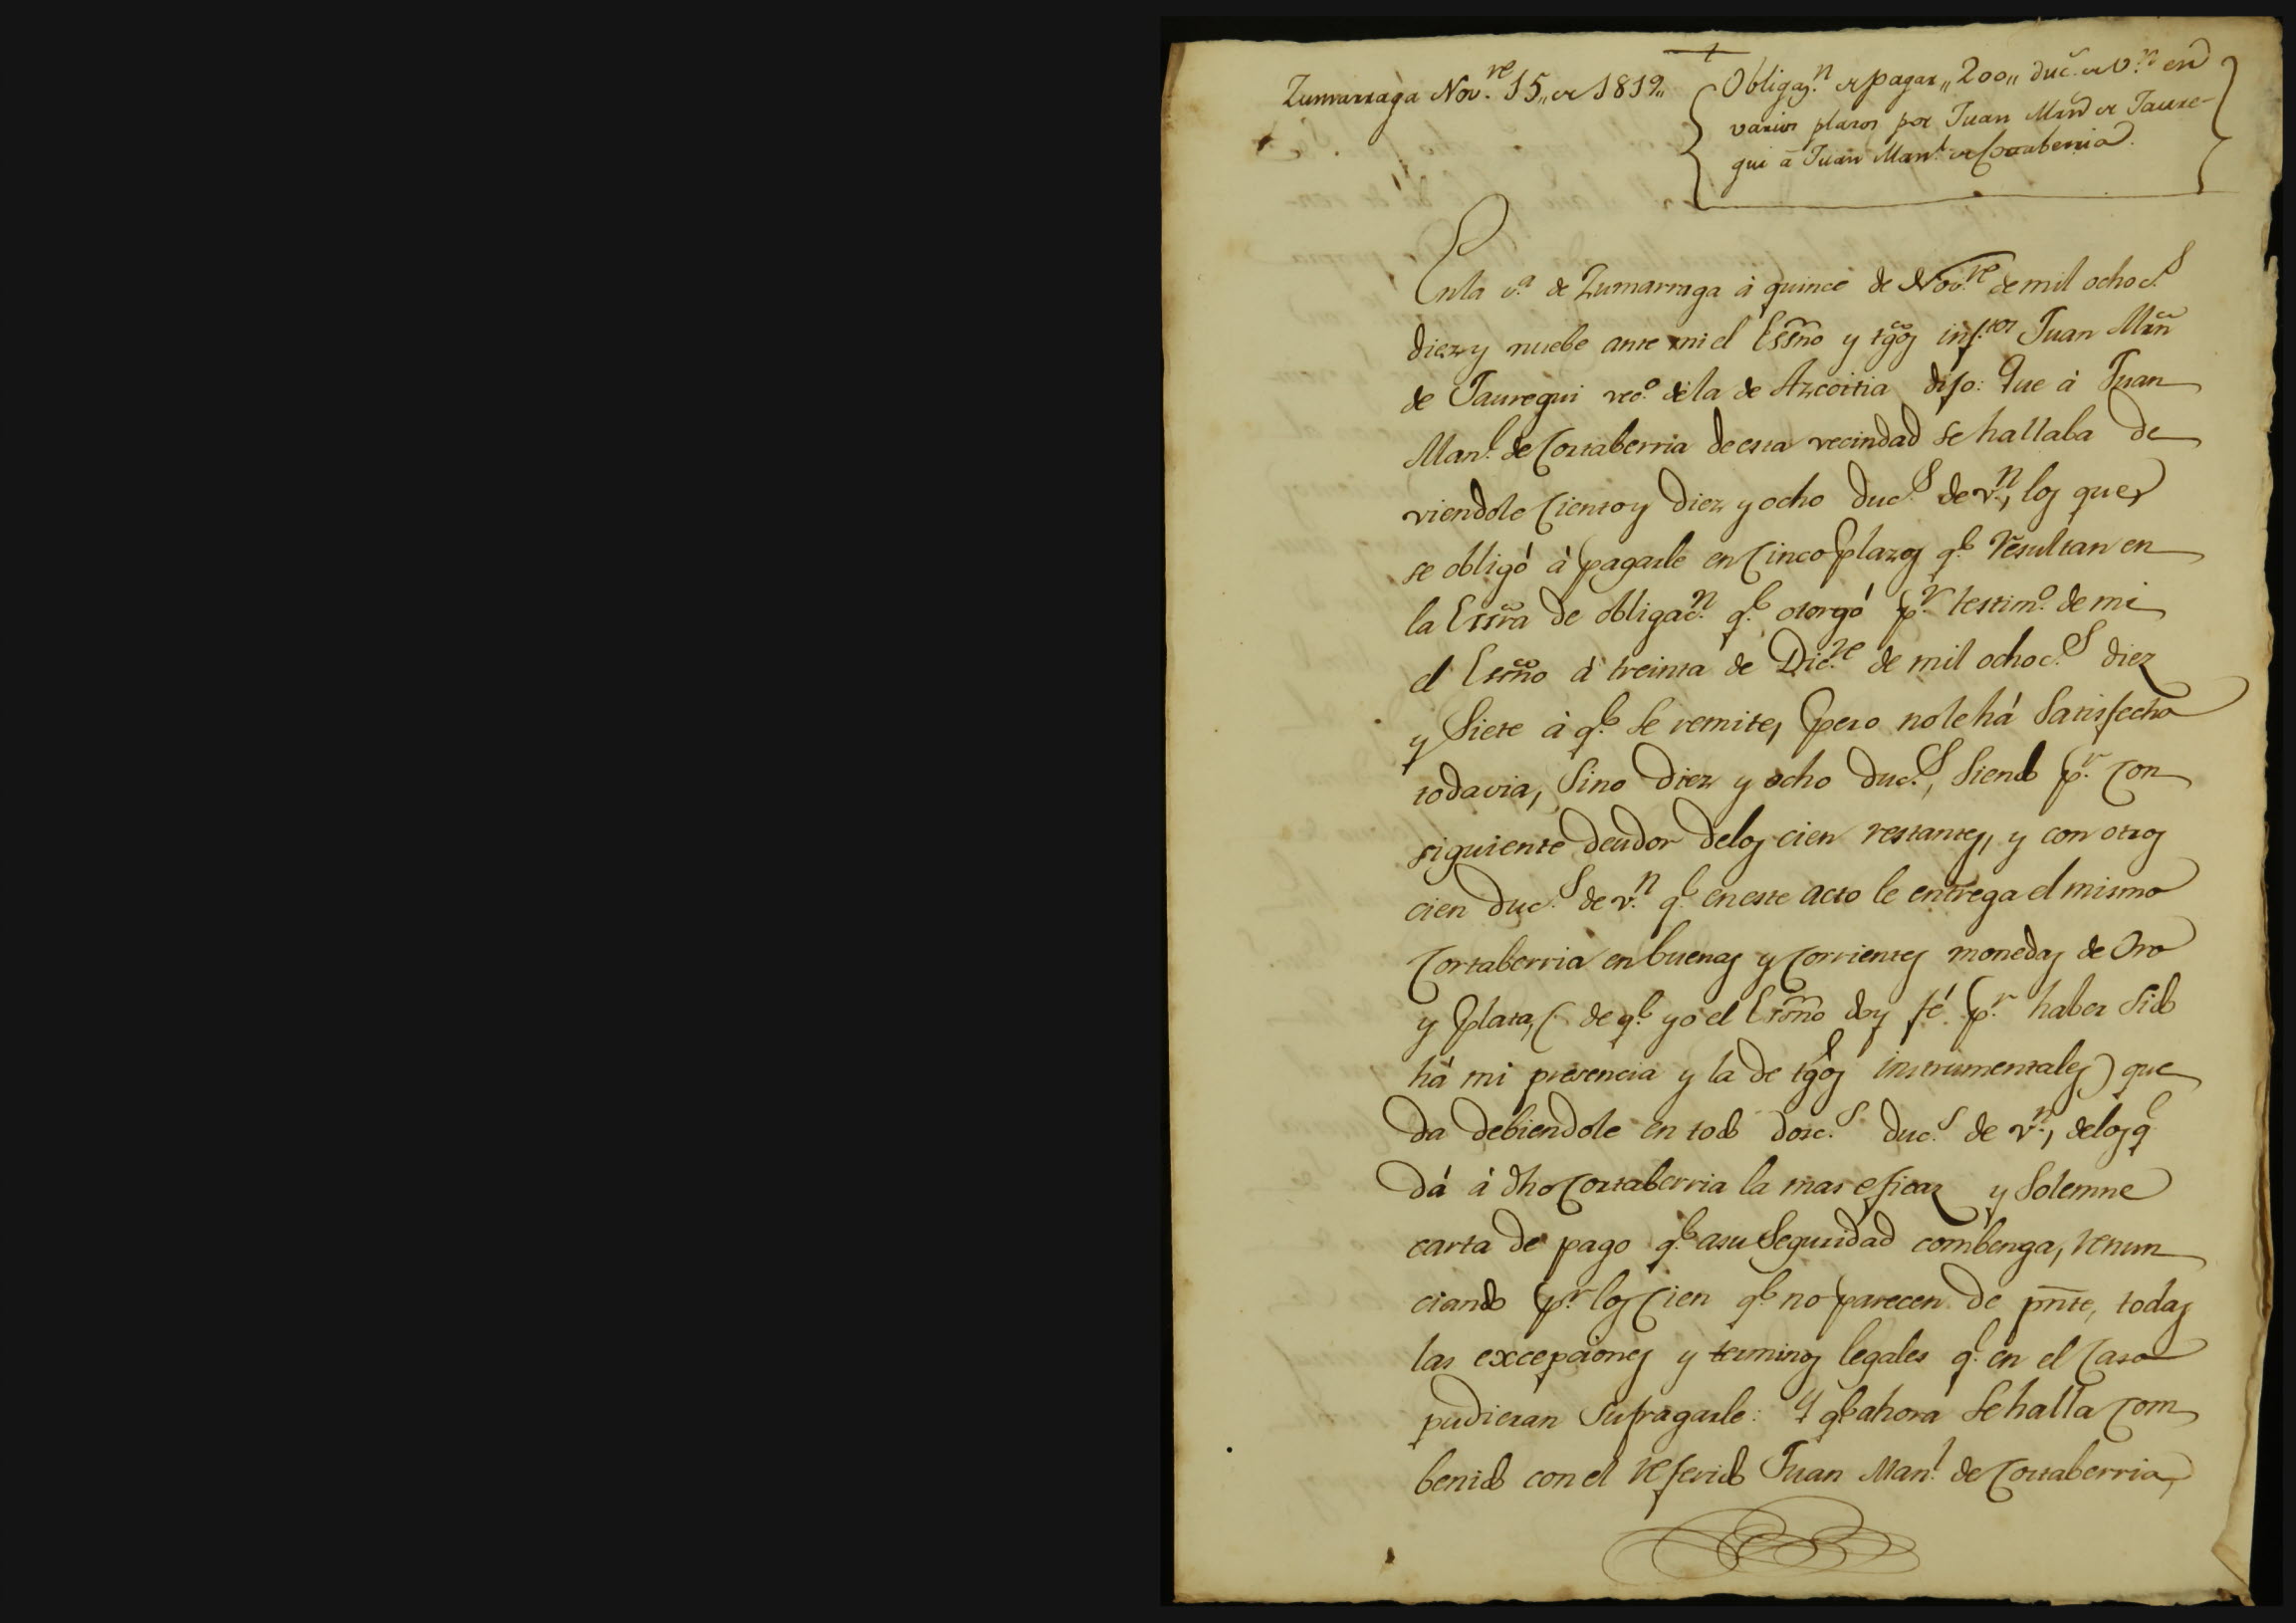 Zumarraga Nov.re 15,, de 1819,,
Obligaz.n de pagar ,,200,, duc.s de v.n en
varios plazos por Juan Mrn de Jaure-
gui á Juan Man.l de Cortaberria.
En la v.a de Zumarraga á quince de Nov.re de mil ochoc.s
diez y nuebe ante mi el Essno y tgos insf.tos Juan Mrn
de Jauregui vec.o de la de Azcoitia dijo: Que á Juan
Man.l de Cortaberria de esta vecindad se hallaba de
viendole Ciento y diez y ocho duc.s de v.n, los que
se obligó á pagarle en Cinco plazos q.e resultan en
la Essra de obligac.n q.e otorgó p.r testim.o de mi
el Essno á treinta de Dic.re de mil ochoc.s diez
y siete á q.e se remite, pero no le há satisfecho
todavia, sino diez y ocho duc.s, siendo p.r con
siguiente deudor de los cien restantes, y con otros
cien duc.s de v.n q.e en este acto le entrega el mismo
Cortaberria en buenas y corrientes monedas de Oro
y plata, (de q.e yo el Essno doy fé p.r haber sido
há mi presencia y la de tgos instrumentales) que
da debiendole en todo dosc.s duc.s de v.n, de los q.e
dá á dho Cortaberria la mas eficaz y solemne
carta de pago q.e a su seguridad combenga, renun
ciando p.r los Cien q.e no parecen de pnte, todas
las excepciones y terminos legales q.e en el Caso
pudieran sufragarle: Y q.e ahora se halla com
benido con el referido Juan Man.l de Cortaberria,